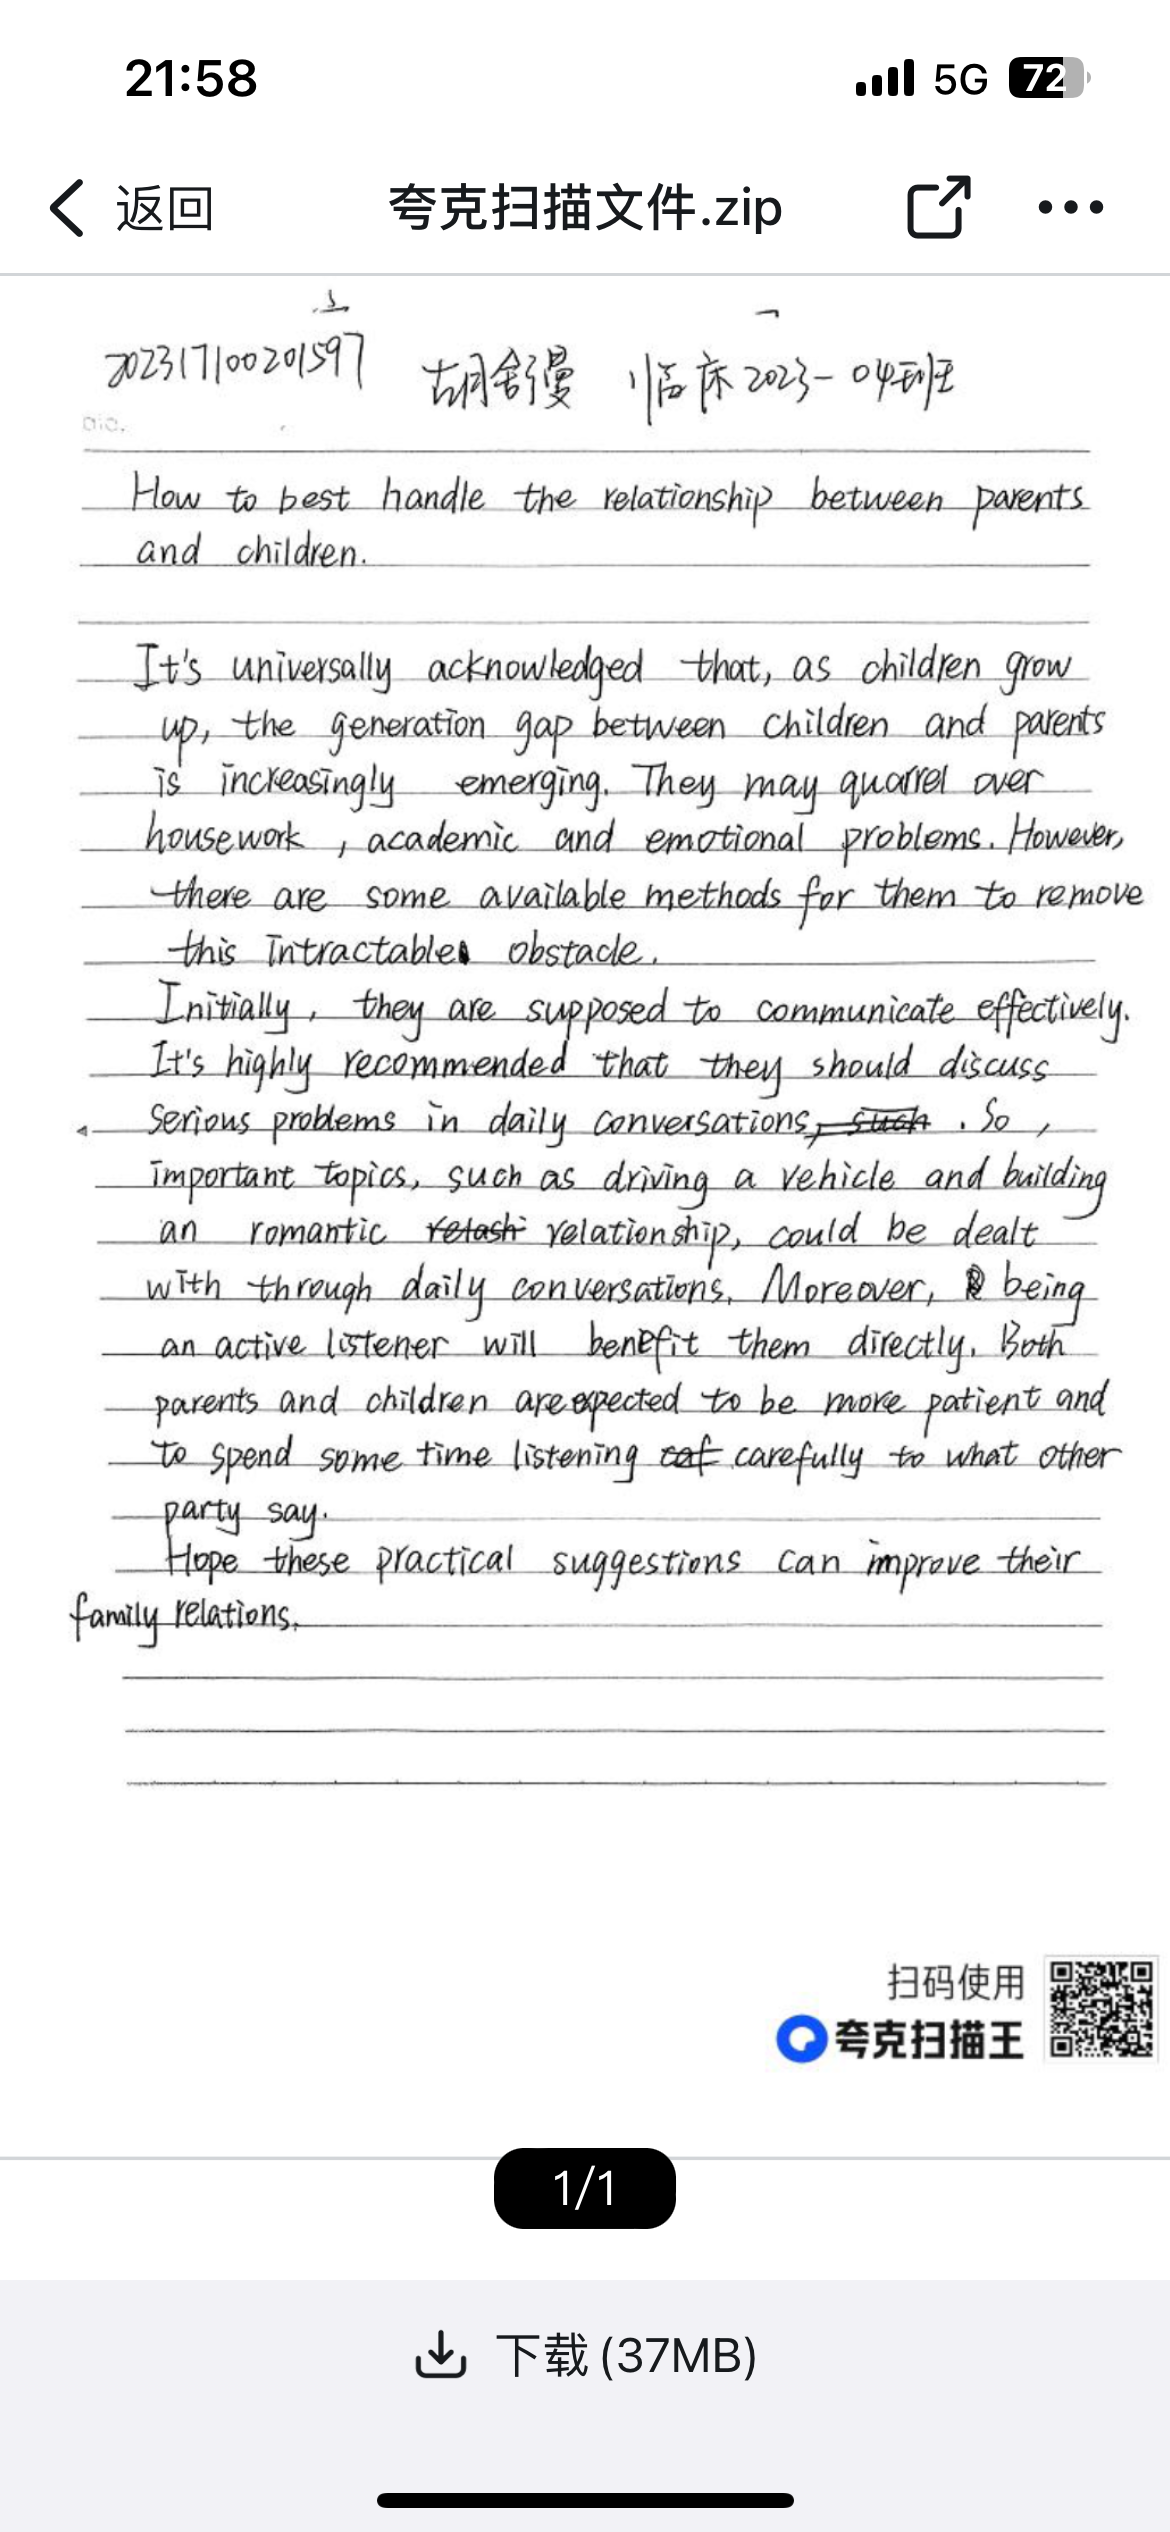 21:58
5G 72
返回
夸克扫描文件.zip
202317100201597 胡舒漫 临床2023-04班
How to best handle the relationship between parents
and children.
It's universally acknowledged that, as children grow
up, the generation gap between children and parents
is increasingly emerging. They may quarrel over
housework, academic and emotional problems. However,
there are some available methods for them to remove
this intractable obstacle.
Initially, they are supposed to communicate effectively.
It's highly recommended that they should discuss
serious problems in daily conversations, such . So,
important topics, such as driving a vehicle and building
an romantic relashi relationship, could be dealt
with through daily conversations. Moreover, being
an active listener will benefit them directly. Both
parents and children are expected to be more patient and
to spend some time listening caf carefully to what other
party say.
Hope these practical suggestions can improve their
family relations.
扫码使用
夸克扫描王
1/1
下载 (37MB)